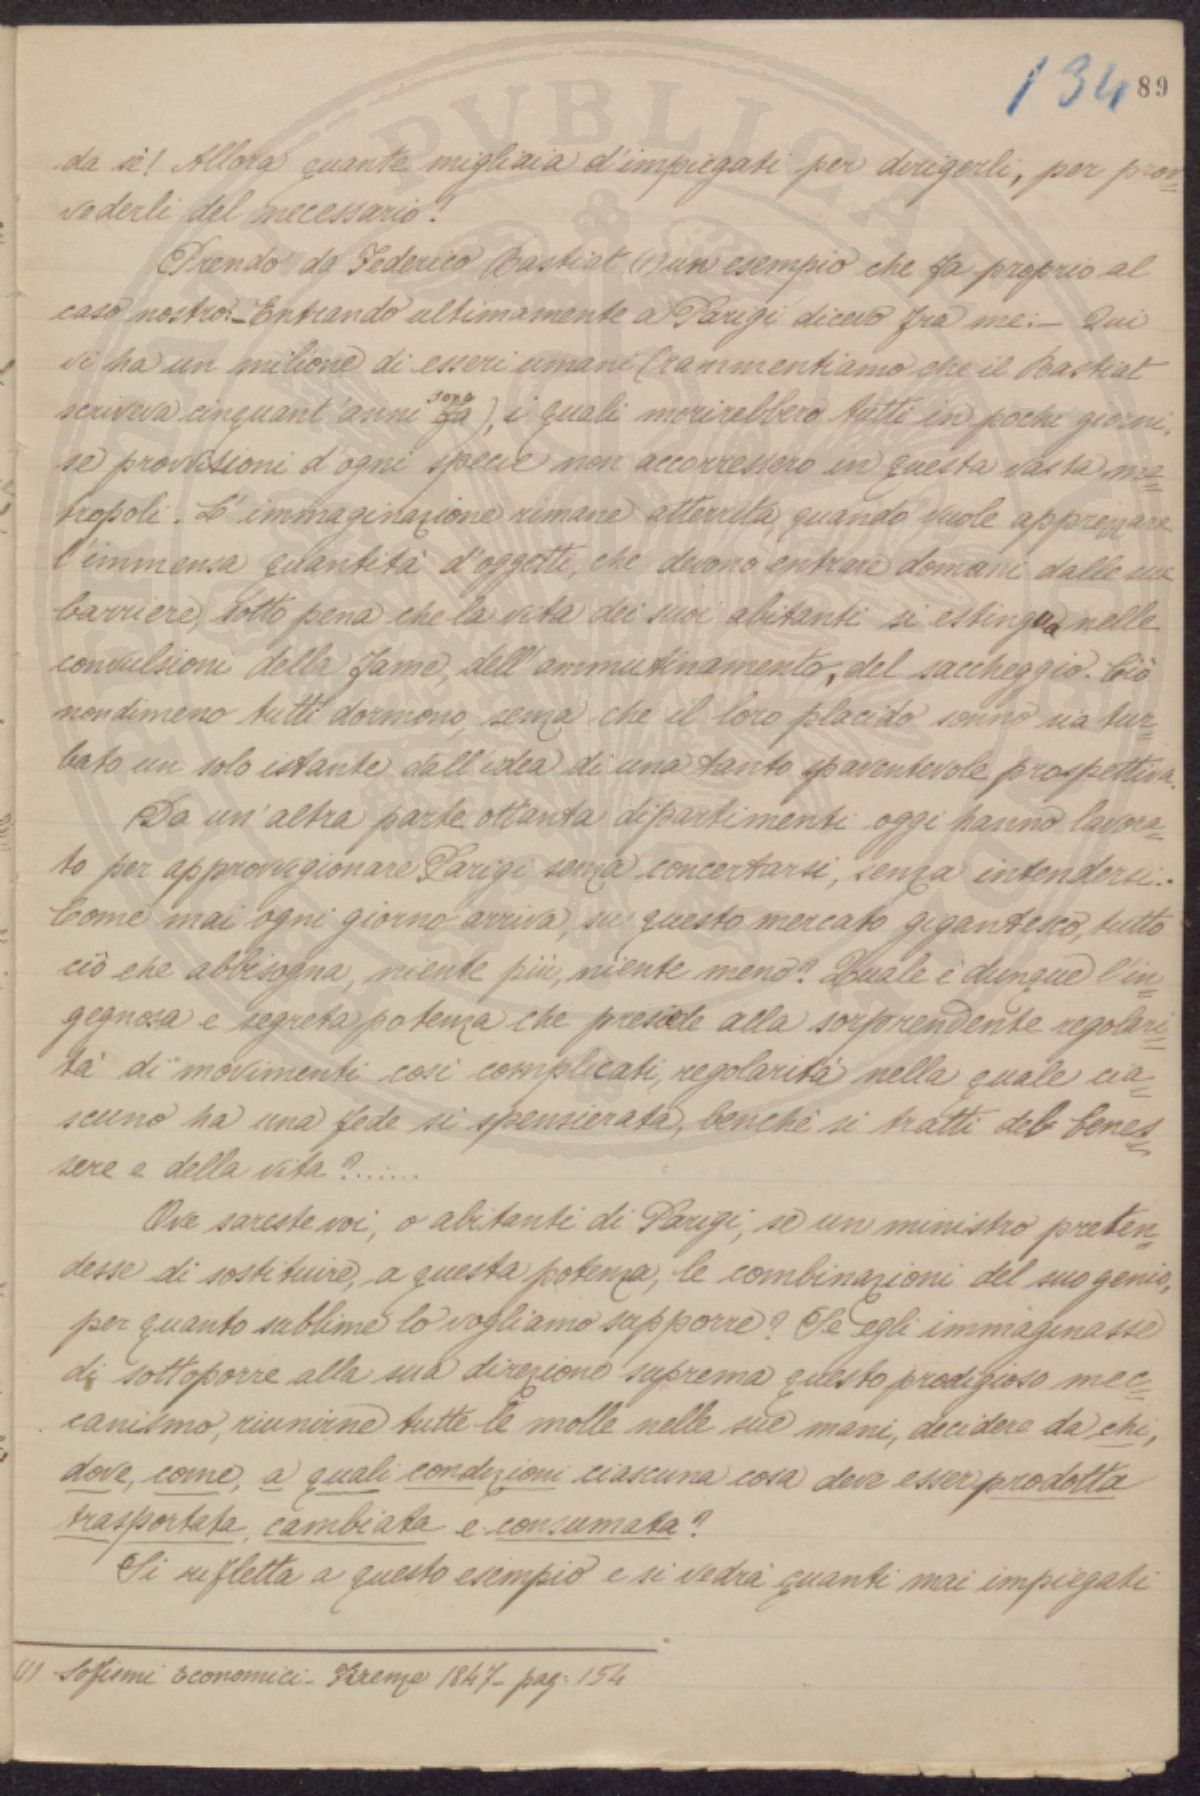 134 89
da sè! Allora quante migliaia d'impiegati per dirigerli, per prov=
vederli del necessario?
Prendo da Federico Bastiat (1) un esempio che fa proprio al
caso nostro:- Entrando ultimamente a Parigi dicevo fra me:- Qui
vi ha un milione di esseri umani (rammentiamo che il Bastiat
sono
scriveva cinquant'anni fa), i quali morirebbero tutti in pochi giorni,
se provvisioni d'ogni specie non accorressero in questa vasta me=
tropoli. L'immaginazione rimane atterrita, quando vuole apprezzare
l'immensa quantità d'oggetti, che devono entrare domani dalle sue
barriere, sotto pena che la vita dei suoi abitanti si estingua nelle
convulsioni della fame, dell'ammutinamento, del saccheggio. Ciò
nondimeno tutti dormono, senza che il loro placido sonno sia tur=
bato un solo istante dall'idea di una tanto spaventevole prospettiva.
Da un'altra parte ottanta dipartimenti oggi hanno lavora=
to per approvvigionare Parigi senza concertarsi, senza intendersi..
Come mai ogni giorno arriva, su questo mercato gigantesco, tutto
ciò che abbisogna, niente più, niente meno? Quale è dunque l'in=
gegnosa e segreta potenza che presiede alla sorprendente regolari=
tà di movimenti così complicati, regolarità nella quale cia=
scuno ha una fede si spensierata, benchè si tratti del benes=
sere e della vita?......
Ove sareste voi, o abitanti di Parigi, se un ministro preten=
desse di sostituire, a questa potenza, le combinazioni del suo genio,
per quanto sublime lo vogliamo supporre? Se egli immaginasse
di sottoporre alla sua direzione suprema questo prodigioso mec=
canismo, riunirne tutte le molle nelle sue mani, decidere da chi,
dove, come, a quali condizioni ciascuna cosa deve esser prodotta
trasportata, cambiata e consumata?
Si rifletta a questo esempio e si vedrà quanti mai impiegati
(1) Sofismi Economici - Firenze 1847 - pag: 154